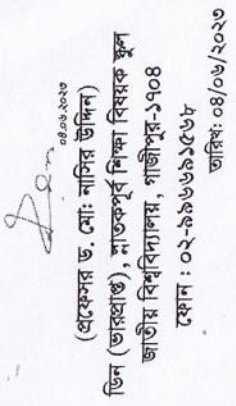 ০৪.০৬.২০২৩
(প্রফেসর ড. মোঃ নাসির উদ্দিন)
ডিন (ভারপ্রাপ্ত), স্নাতকপূর্ব শিক্ষা বিষয়ক স্কুল
জাতীয় বিশ্ববিদ্যালয়, গাজীপুর-১৭০৪
ফোন : ০২-৯৯৬৬৯১৫৬৮
তারিখ: ০৪/০৬/২০২৩